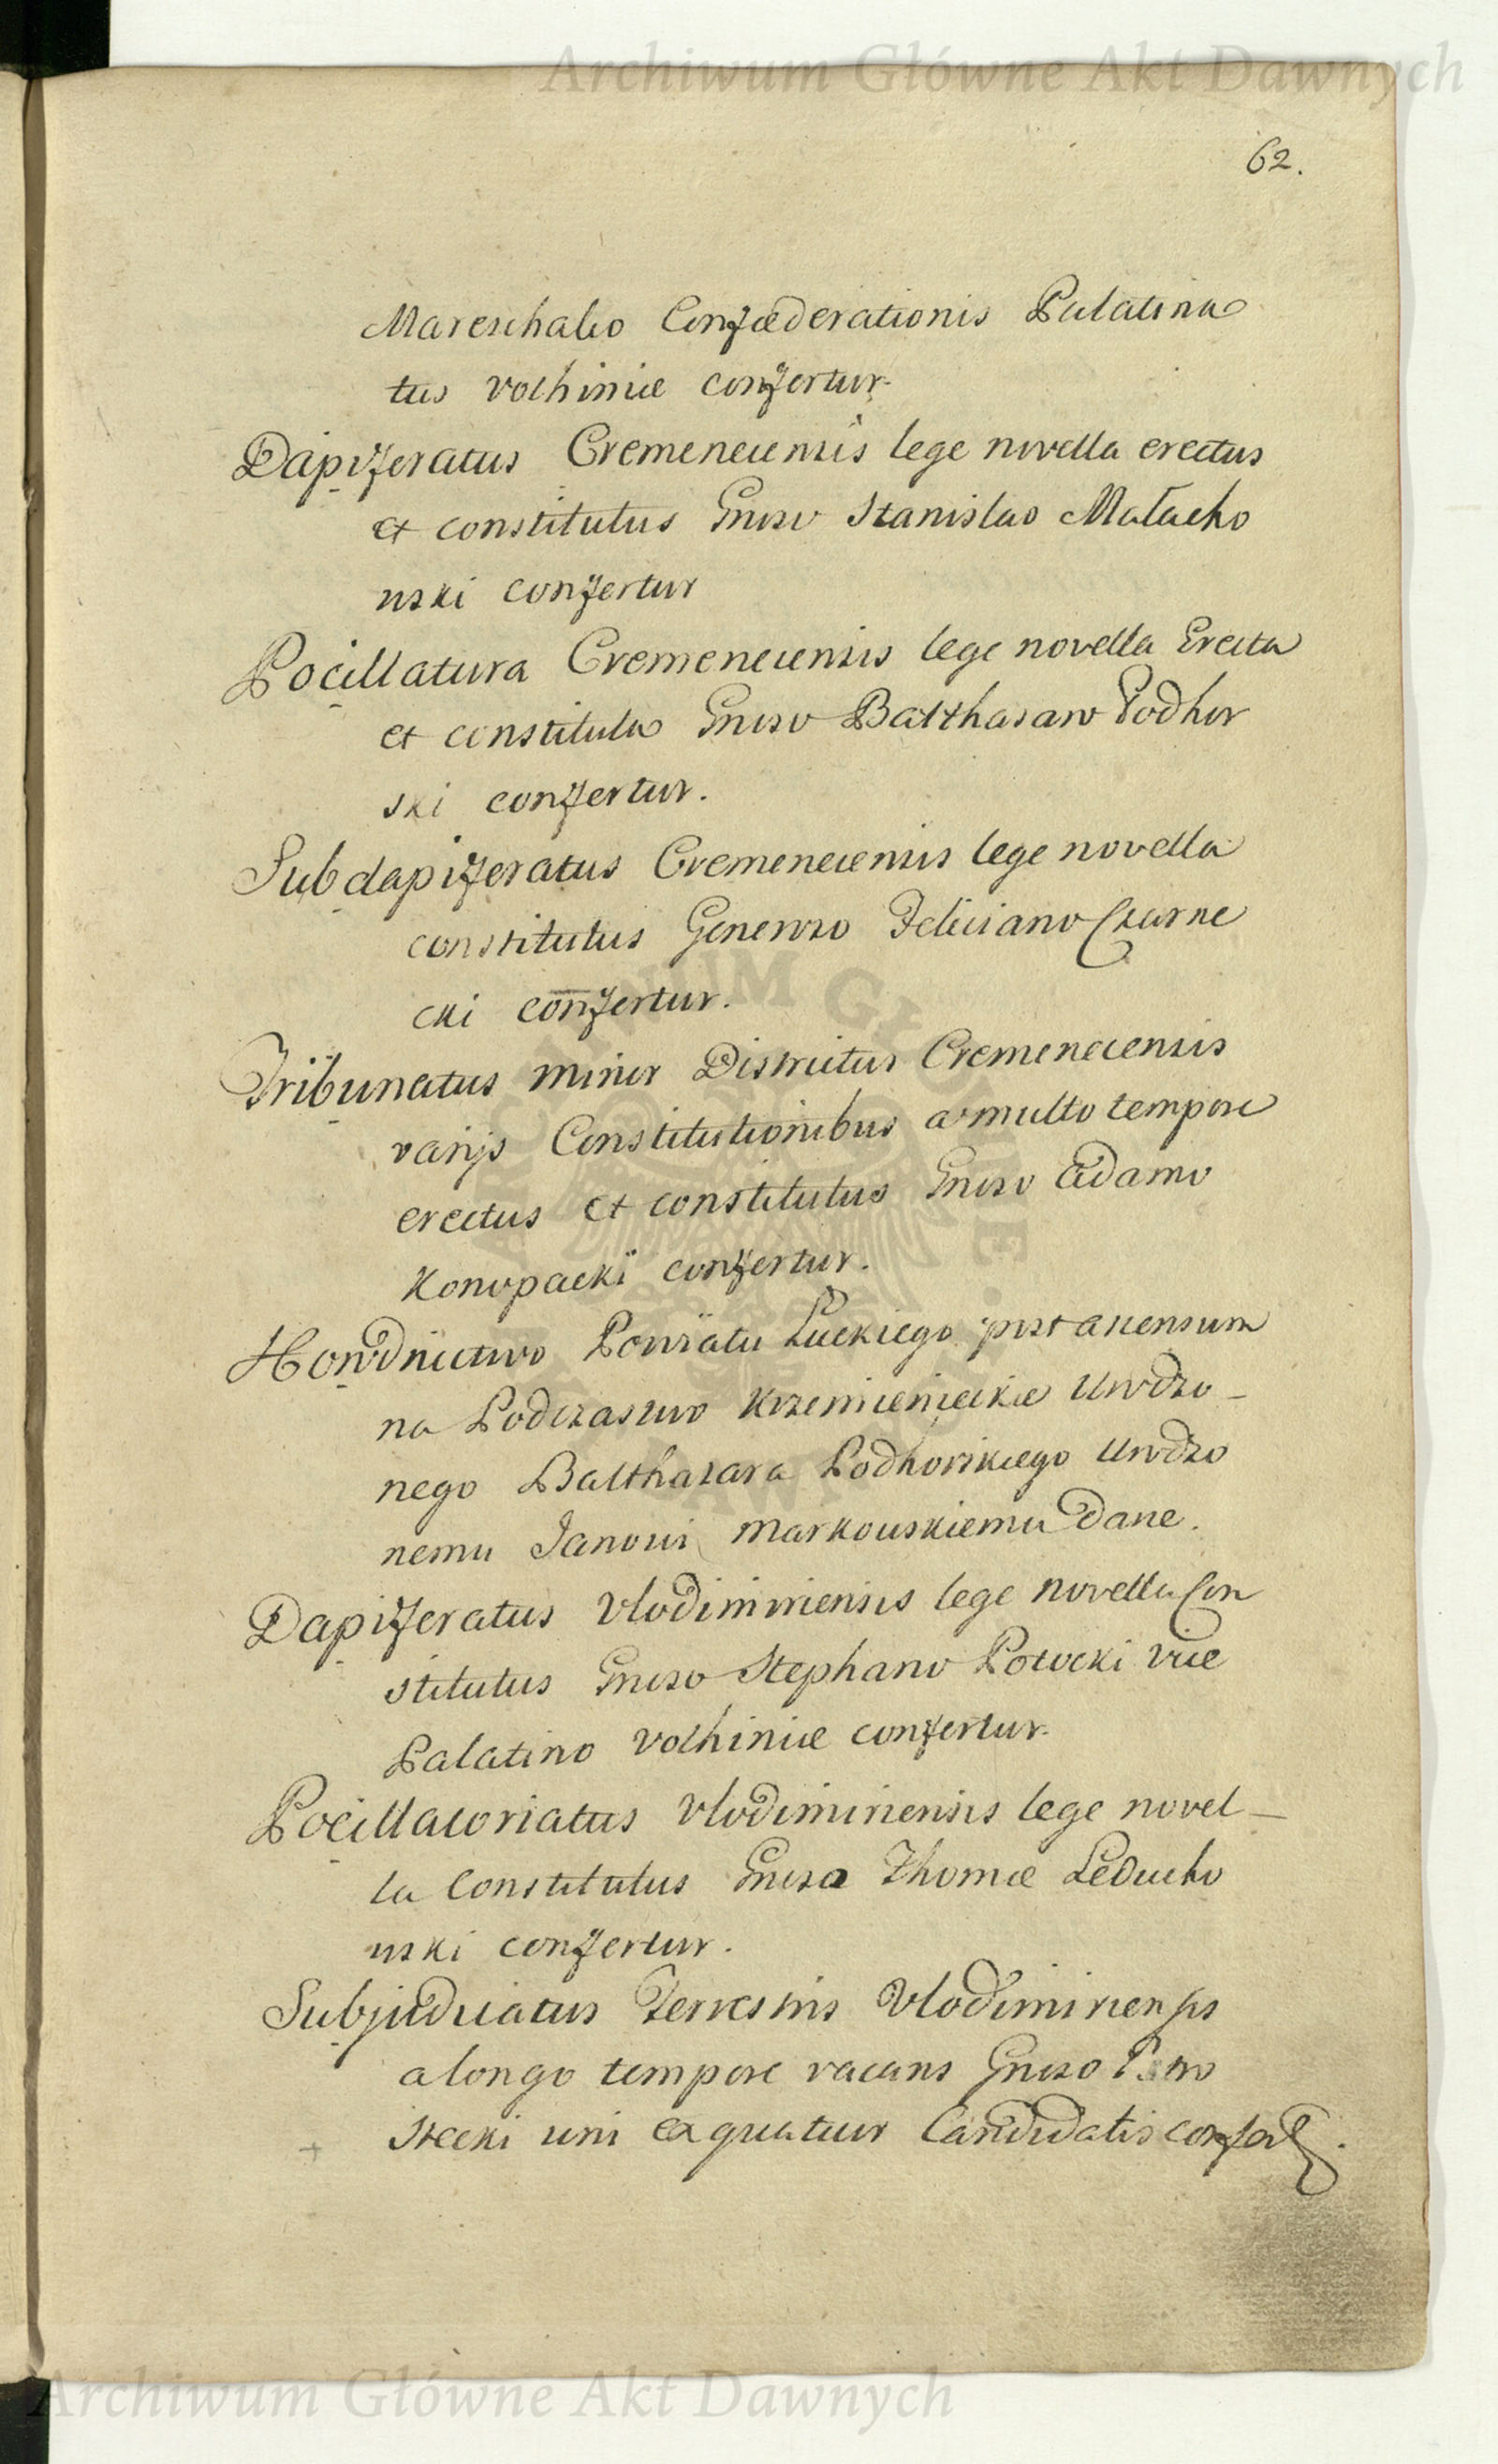 Archiwum Główne Akt Dawnych
62.
Mareschalco Confœderationis Palatina
tus Volhiniæ confertur.
Dapiferatus Cremenecensis lege novella erectus
et constitutus Gnoso Stanislao Małacho
wski confertur
Pocillatura Cremenecensis lege novella Erecta
et constituta Gnoso Balthasaro Podhor
ski confertur.
Subdapiferatus Cremenecensis lege novella
constitutus Generoso Feliciano Czarne
cki confertur.
Tribunatus minor Districtus Cremenecensis
varijs Constitutionibus a multo tempore
erectus et constitutus Gnoso Adamo
Konopacki confertur.
Horodnictwo Powiatu Łuckiego post ascensum
na Podczastwo Krzemienieckie Urodzo-
nego Balthazara Podhorskiego Urodzo
nemu Janowi Markowskiemu dane.
Dapiferatus Vlodimiriensis lege novella Con
stitutus Gnoso Stephano Potocki Vice
Palatino Volhiniæ confertur.
Pocillatoriatus Vlodimiriensis lege novel-
la Constitutus Gnoso Thomæ Leducho
wski confertur.
Subjudicatus Terrestris Vlodimiriensis
a longo tempore vacans Gnoso
Stecki uni ex quatuor Candidatis confertur.
Archiwum Główne Akt Dawnych